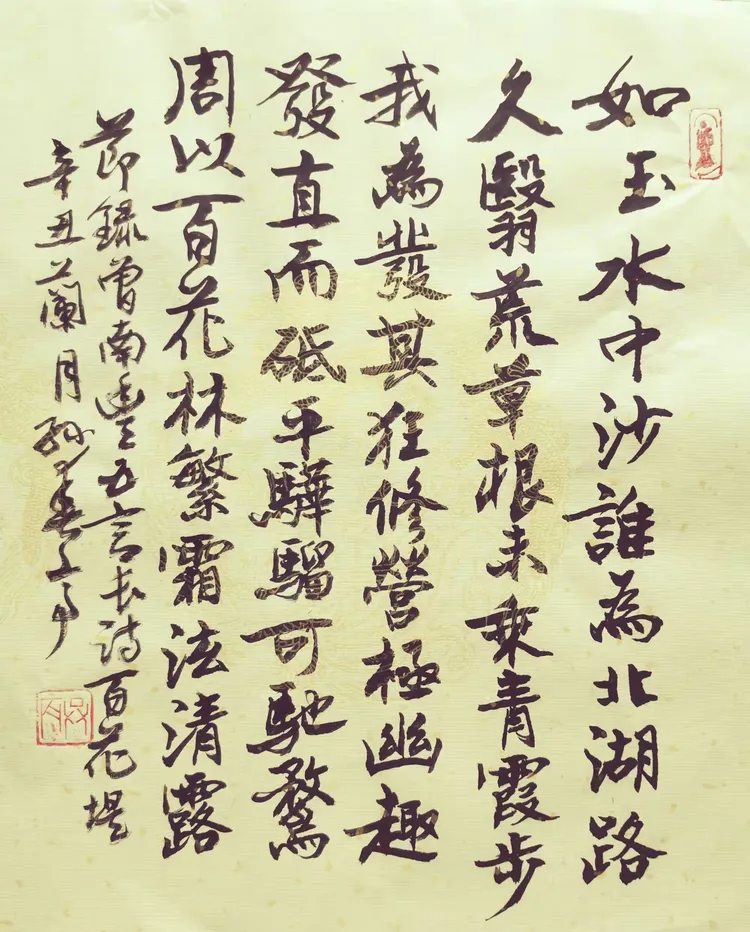 如玉水中沙誰為北湖路
久翳荒草根未乘青霞步
我為發其狂修營極幽趣
發直而砥平驊騮可馳騖
周以百花林繁霜泫清露
節錄曾南豐五言長詩百花堤
辛丑蘭月孫